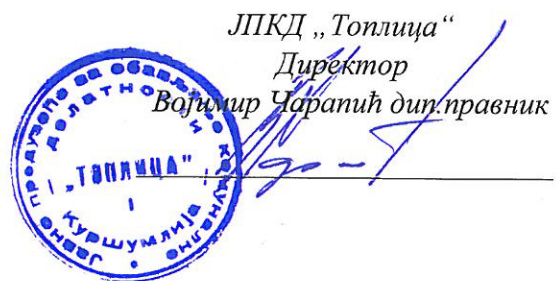 ЈПКД „Топлица“
Директор
Војимир Чарапић дип.правник
Јавно предузеће за обављање комуналне
делатности
„ТОПЛИЦА"
I
Куршумлија